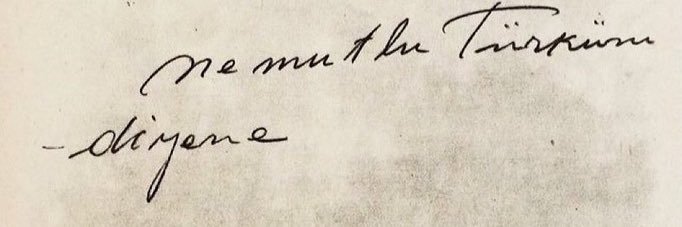 ne mutlu Türküm
- diyene